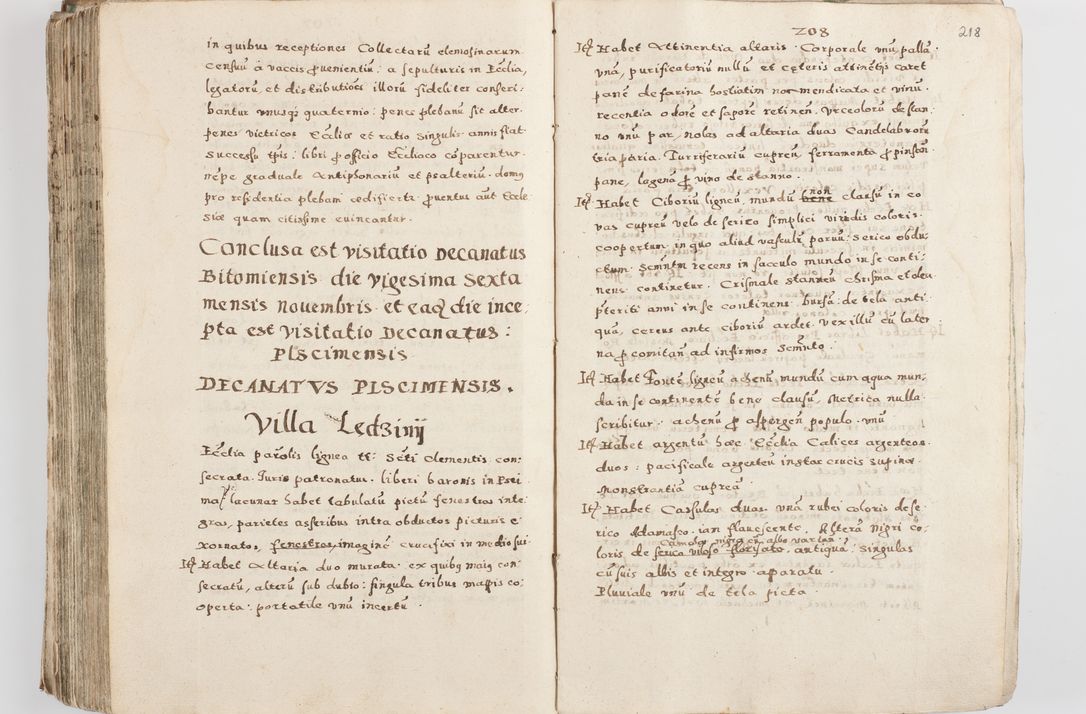 in quibus receptiones Collectarū elemosinarum
censuū à vaccis ꝓuenientiū: a sepulturis in Ecclia,
legatorū, et distributiōes illorū fideliter conscri:
bantur unusqꝫ quaternio: penes plebanū sit alter
penes vietricos Eccliæ et ratio singulis annis fiat
successu tp̄is: libri ꝓ officio Eccliaco cōparentur
nēpe graduale Antiphonariū et psalteriū. domꝰ
pro residentia plebani ædificetr: ꝓuentus aūt Eccle
siæ quam citissime euincantur.
Conclusa est visitatio Decanatus
Bitomiensis die vigesima sexta
mensis nouembris et eaqꝫ die ince,
pta est visitatio Decanatus:
Plscimensis
DECANATVS PLSCIMENSIS.
Villa Ledziny
Ecclia parōlis lignea tt: Scti Clementis con:
secrata. Juris patronatus. liberi baronis in Psci
ma, lacunar habet tabulatū pictū fenestras inte
gras, parietes asseribus intra obductos picturis e
xornatos, fenestras, imaginē crucifixi in medio sui
Itꝫ Habet Altaria duo murata. ex quibꝫ maiꝫ con
secratū, alterū sub dubio: singula tribus mappis co:
operta: portatile unū incertū.
208
218
Itꝫ Habet Attinentia altaris. Corporale unū, palla
una, purificatoriū nullū et cęteris attinētijs caret
panē de farina hostiatim non mendicata et vinū
recentia odorē et saporē retinen. Vrceolorū de stan
no unū par, nolas ad altaria duas Candelabrorū
tria paria. Turriferariū cupreū, ferramenta ꝓ pinsen
pane, lagenā ꝓ vino de stanno.
Itꝫ Habet Ciboriū ligneū, mundū bene non clausū in eo
vas cupreū velo de serico simplici viridis coloris.
coopertum, in quo aliud vasculū paruū. Serico obdu:
ctum. Scm̄tm recens in sacculo mundo in se conti:
nens continetur. Crismale stanneū chrisma et oleū
p̄teriti anni in se continens bursa: de tela anti:
qua, cereus ante ciboriū ardet. Vexillū cū later
na ꝓ comitan ad infirmos Scm̄to.
Itꝫ Habet Fontē ligneū achenū mundū cum aqua mun:
da in se continente bene clausū, Metrica nulla
scribitur. achenū ꝓ aspergen populo unū
Itꝫ Habet argentū hæc Ecclia Calices argenteos
duos: pacificale argenteū instar crucis
Monstrantiā cupreā
Itꝫ Habet Casulas duas. unā rubei coloris de se
rico Adamasco. ian flauescente. Alterā nigri co:
loris de serica uiloso floryato Camcha nigra cū albo variam antiqua: Singulas
cū suis albis et integro apparatu.
Pluuiale unū de tela picta.